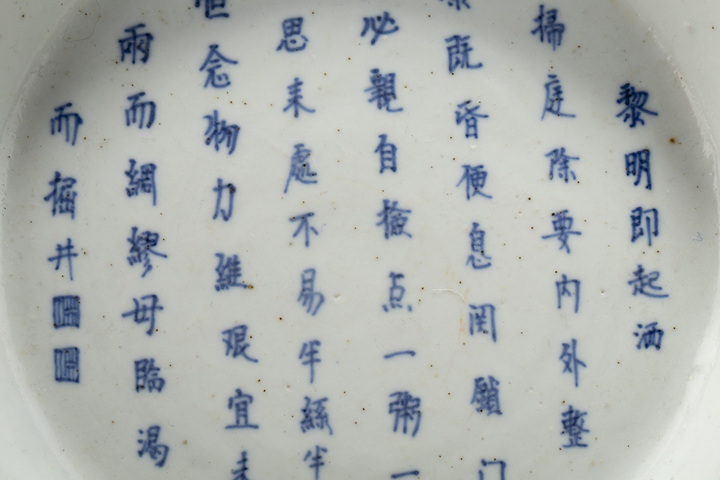 黎明即起洒
掃庭除要内外整
既昏便息関鎖门
必親自檢点一粥一
思来處不易半絲半
恒念物力維艱宜未
雨而綢繆毋臨渴
而掘井